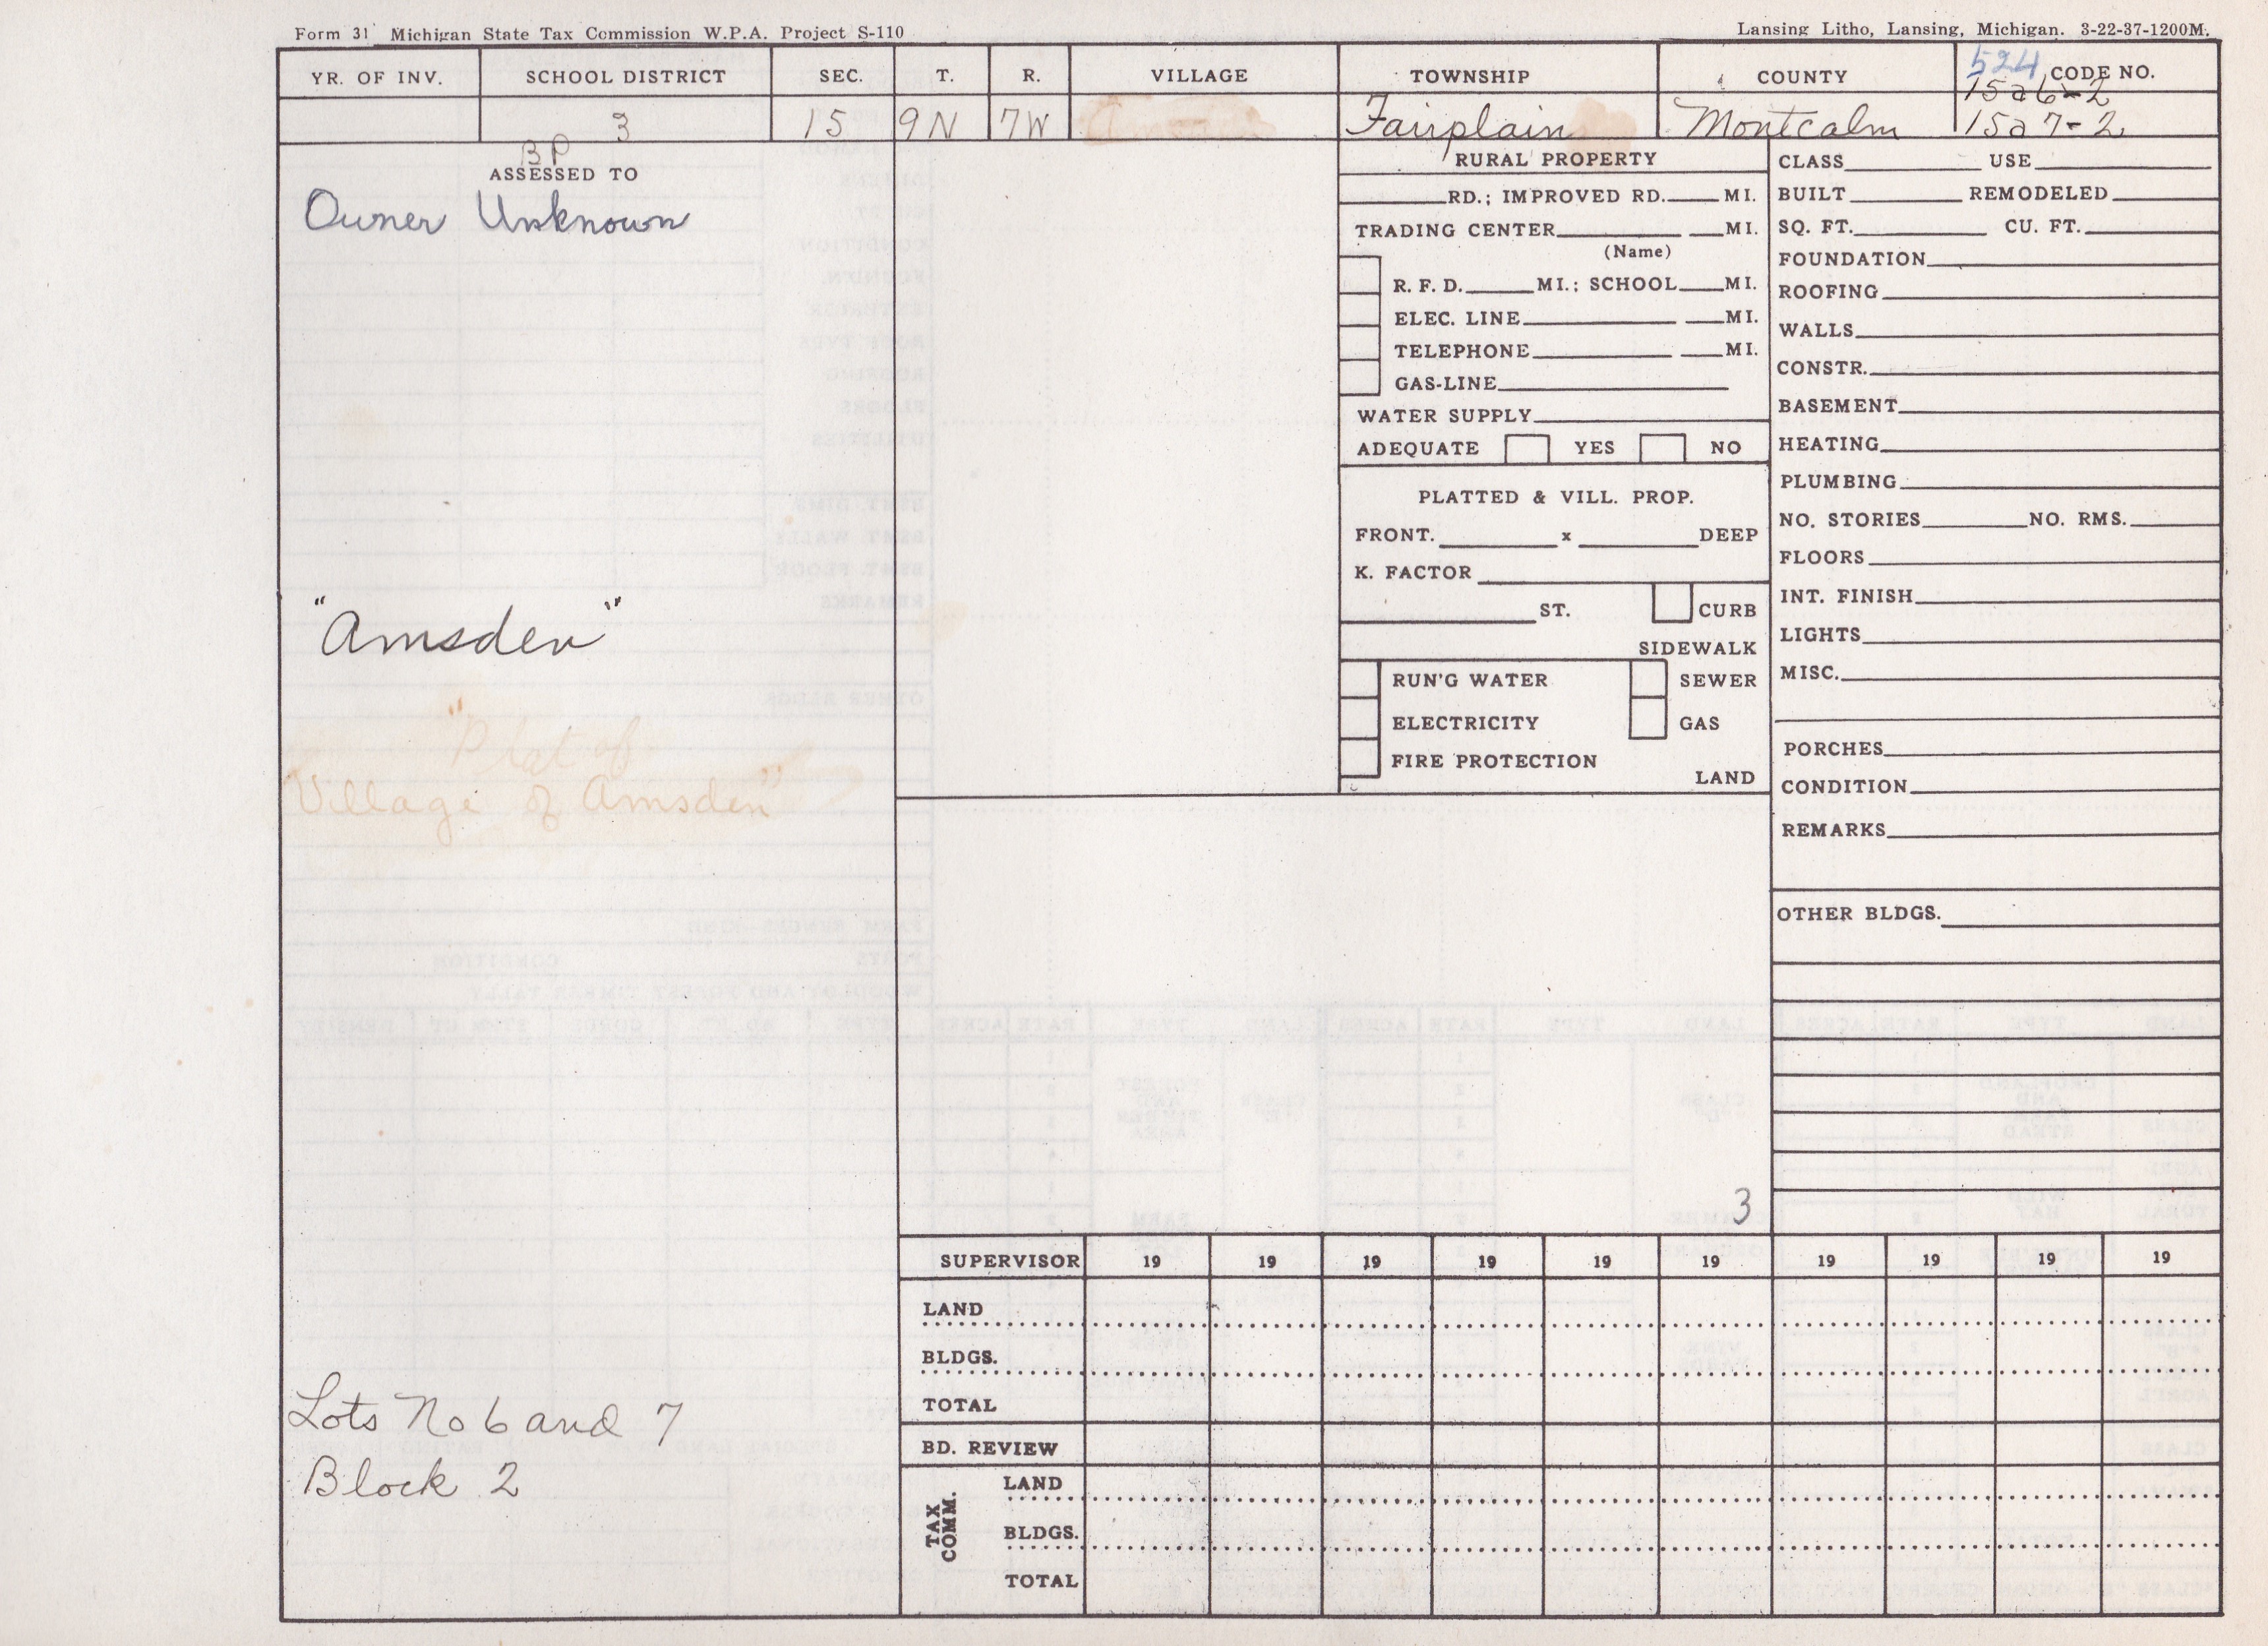 Form 31 Michigan State Tax Commission W.P.A. Project S-110
Lansing Litho, Lansing, Michigan. 3-22-37-1200M.
YR. OF INV. SCHOOL DISTRICT SEC. T. R. VILLAGE TOWNSHIP COUNTY 524 CODE NO.
15a6-2
3 15 9N 7W Amsden Fairplain Montcalm 15a7-2
BP
ASSESSED TO
Owner Unknown
"Amsden"
"Plat of
Village of Amsden"
Lots No 6 and 7
Block 2
RURAL PROPERTY
RD.; IMPROVED RD. MI.
TRADING CENTER MI.
(Name)
R. F. D. MI.; SCHOOL MI.
ELEC. LINE MI.
TELEPHONE MI.
GAS-LINE
WATER SUPPLY
ADEQUATE YES NO
PLATTED & VILL. PROP.
FRONT. x DEEP
K. FACTOR
ST. CURB
SIDEWALK
RUN'G WATER SEWER
ELECTRICITY GAS
FIRE PROTECTION
LAND
3
CLASS USE
BUILT REMODELED
SQ. FT. CU. FT.
FOUNDATION
ROOFING
WALLS
CONSTR.
BASEMENT
HEATING
PLUMBING
NO. STORIES NO. RMS.
FLOORS
INT. FINISH
LIGHTS
MISC.
PORCHES
CONDITION
REMARKS
OTHER BLDGS.
SUPERVISOR 19 19 19 19 19 19 19 19 19 19
LAND
BLDGS.
TOTAL
BD. REVIEW
TAX COMM.
LAND
BLDGS.
TOTAL